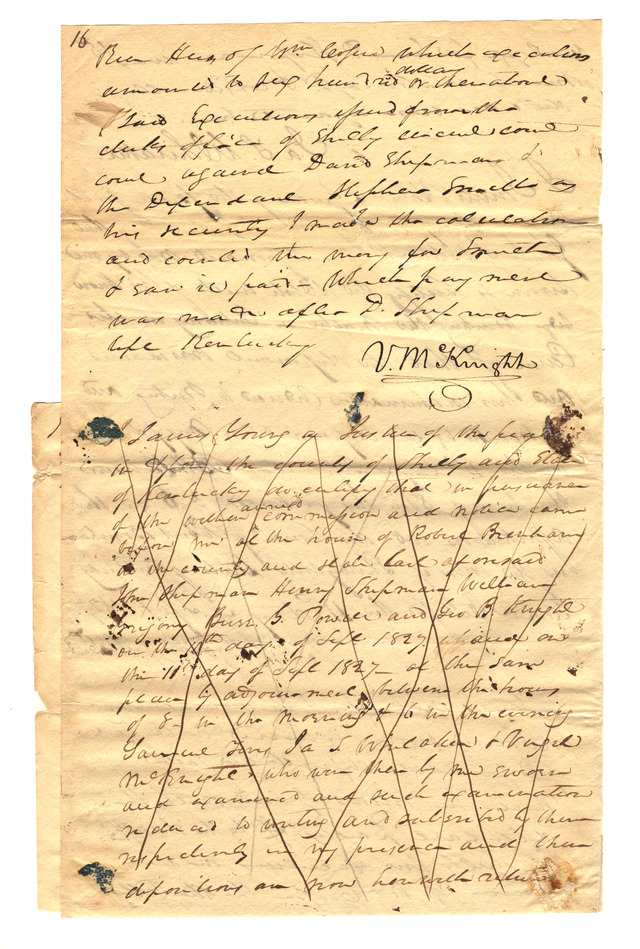 16
Ben Heag of Wm Cosfie which executions
amounted to six hundred dollars or thereabout
Said Executions issued from the
clerks office of Shelby circuit court
court against David Shipman &
the Defendant Stephen Smith as
his security I made the calculation
and counted the money for Smith
& saw it paid - Which payment
was made after D. Shipman
left Kentucky
V. McKnight
I James Young a Justice of the peace
in & for the county of Shelby and State
of Kentucky do certify that in pursuance
of the within annexed commission and notice came
before me at the house of Robert Brenham
in the county and state last aforesaid
John Shipman Henry Shipman William
Burr G Powell and Geo B Knight
on the day of Sept 1827 and on
the 11th day of Sept 1827 - at the same
place by adjournment between the hours
of 8 in the morning & 6 in the evening
Samuel Ja S Whitaker & Virgil
McKnight who were then by me sworn
and examined and such examination
reduced to writing and subscribed by them
respectively in my presence and their
depositions are now herewith return